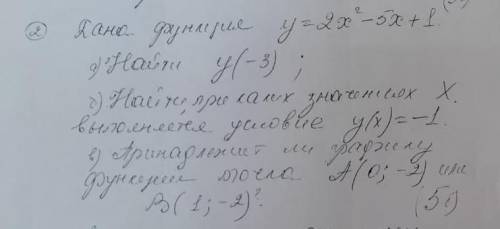 ② Дана функция y=2x²-5x+1.
а) Найти y(-3) ;
б) Найти, при каких значениях X.
выполняется условие y(x)=-1.
в) Принадлежит ли графику
функции точка A(0;-2) или
B(1;-2)? (5б)